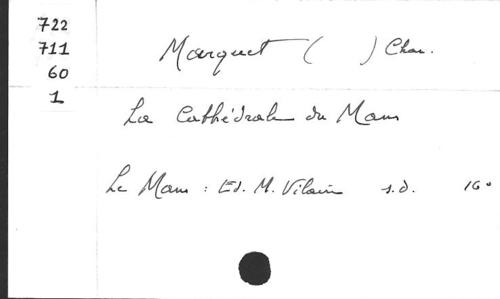 722
711
60
1
Marquet ( ) Chan.
La Cathédrale du Mans
Le Mans : Ed. M. Vilain s.d. 16°